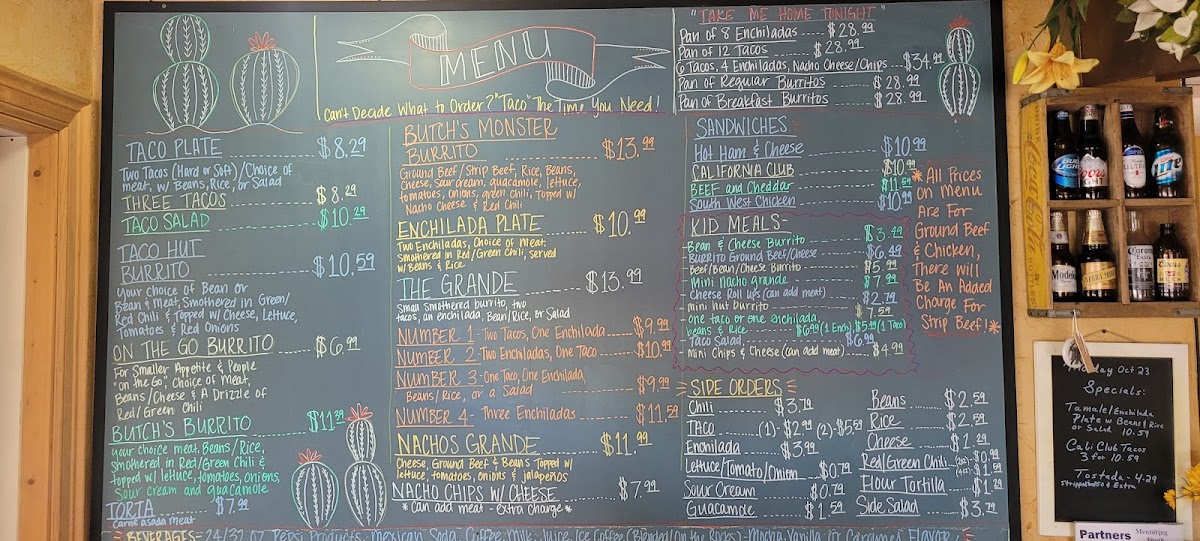 MENU
Can't Decide What to Order? "Taco" The Time You Need!
TACO PLATE $8.29
Two Tacos (Hard or Soft)/Choice of
meat, w/ Beans, Rice, or Salad
THREE TACOS $8.29
TACO SALAD $10.29
TACO HUT
BURRITO $10.59
Your choice of Bean or
Bean & meat, Smothered in Green/
Red Chili & Topped w/ Cheese, Lettuce,
Tomatoes & Red Onions
ON THE GO BURRITO $6.99
For Smaller Appetite & People
"on the Go", Choice of meat,
Beans/Cheese & A Drizzle of
Red/Green Chili
BUTCH'S BURRITO $11.39
your choice meat, Beans/Rice,
Smothered in Red/Green Chili &
topped w/ lettuce, tomatoes, onions,
Sour cream and guacamole
TORTA $7.99
Carne asada meat
BUTCH'S MONSTER
BURRITO $13.99
Ground Beef/Strip Beef, Rice, Beans,
Cheese, Sour cream, guacamole, lettuce,
tomatoes, onions, green Chili, Topped w/
Nacho Cheese & Red Chili
ENCHILADA PLATE $10.99
Two Enchiladas, Choice of meat
Smothered in Red/Green Chili, served
w/ Beans & Rice
THE GRANDE $13.99
Small smothered burrito, two
tacos, an enchilada, Bean/Rice, or Salad
NUMBER 1 - Two Tacos, One Enchilada $9.99
NUMBER 2 - Two Enchiladas, One Taco $10.99
NUMBER 3 - One Taco, One Enchilada,
Beans/Rice, or a Salad $9.99
NUMBER 4 - Three Enchiladas $11.59
NACHOS GRANDE $11.99
Cheese, Ground Beef & Beans Topped w/
lettuce, tomatoes, onions & jalapeños
NACHO CHIPS W/ CHEESE $7.99
*can add meat - extra charge*
"TAKE ME HOME TONIGHT"
Pan of 8 Enchiladas $28.99
Pan of 12 Tacos $28.99
6 Tacos, 4 Enchiladas, Nacho Cheese/Chips $34.99
Pan of Regular Burritos $28.99
Pan of Breakfast Burritos $28.99
SANDWICHES
Hot Ham & Cheese $10.99
CALIFORNIA CLUB $10.99
BEEF and Cheddar $11.59
South West Chicken $10.99
KID MEALS
- Bean & Cheese Burrito $3.49
- BURRITO Ground Beef/Cheese $6.49
- Beef/Bean/Cheese Burrito $5.99
- Mini nacho grande $7.99
- Cheese Roll ups (can add meat) $2.79
- mini hut burrito $7.59
- one taco or one enchilada,
beans & Rice $6.99 (1 Ench) $5.99 (1 Taco)
Taco Salad $6.99
mini Chips & Cheese (can add meat) $4.99
SIDE ORDERS
Chili $3.79
TACO (1)- $2.99 (2)- $5.59
Enchilada $3.99
Lettuce/Tomato/Onion $0.79
Sour Cream $0.79
Guacamole $1.59
Beans $2.59
Rice $2.59
Cheese $1.29
Red/Green Chili $0.99
$1.59
Flour Tortilla $1.29
Side Salad $3.79
* All Prices
on Menu
Are For
Ground Beef
& Chicken,
There Will
Be An Added
Charge For
Strip Beef! *
BEVERAGES = 24/32 oz Pepsi Products - Mexican Soda, Coffee, Milk, Juice, Ice Coffee (Blended/On the Rocks) - Mocha, Vanilla or Caramel Flavor
BUD LIGHT
Coors LIGHT
ULTRA
Lite
Modelo
Corona
Oct 23
Specials:
Tamale/Enchilada
Plate w Beans & Rice
or Salad 10.59
Cali Club Tacos
3 for 10.59
Tostada - 4.29
Extra
Partners Mentoring
Youth